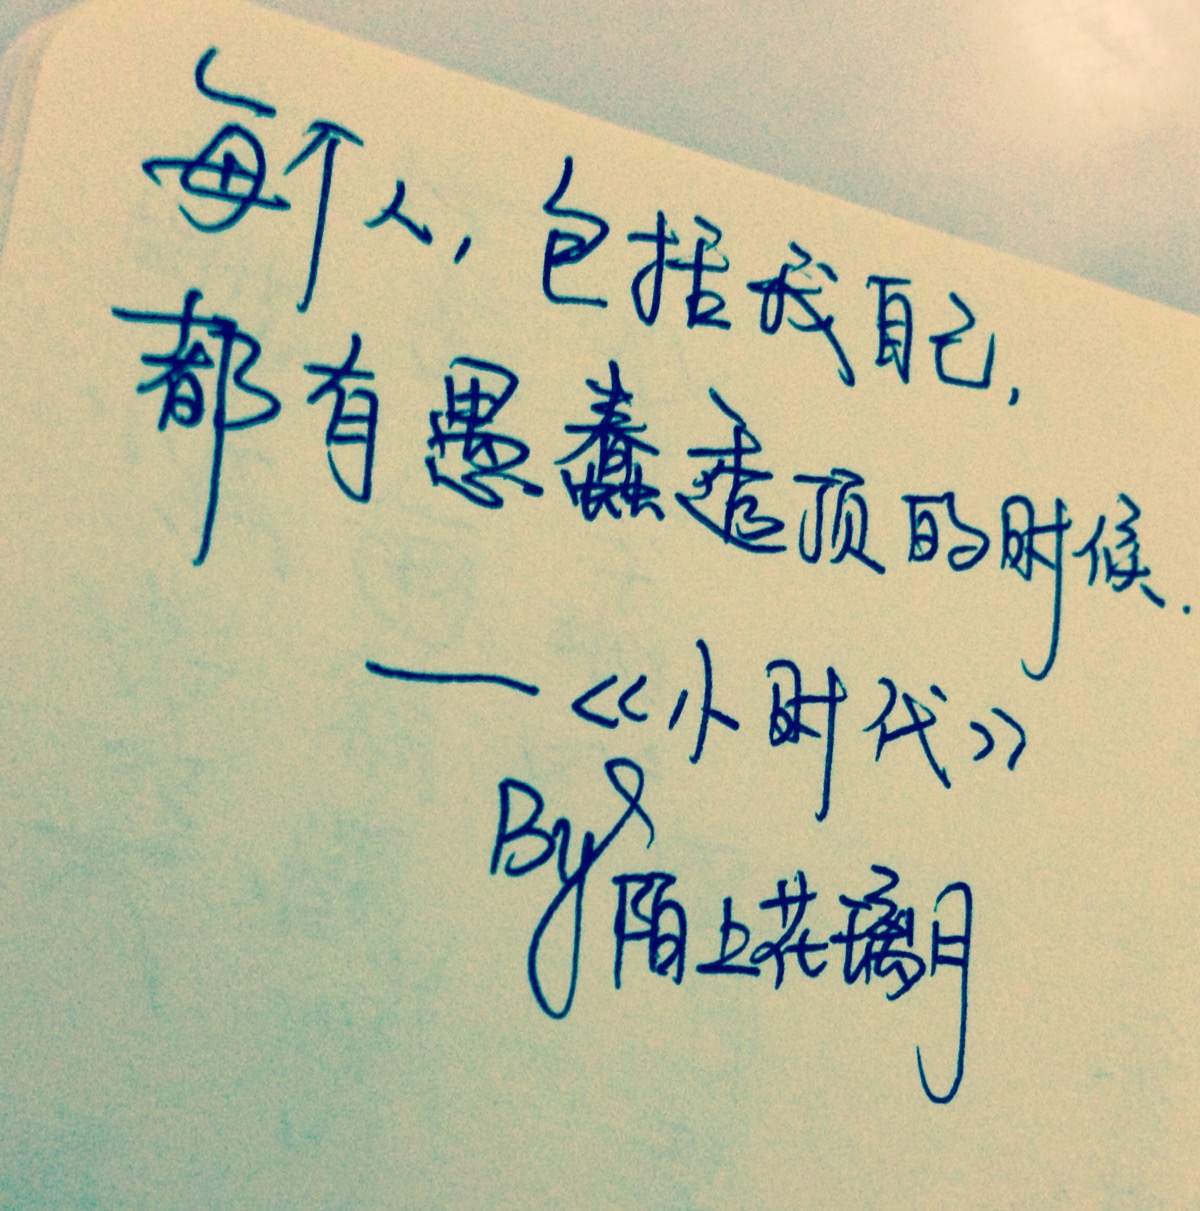 每个人,包括我自己,
都有愚蠢透顶的时候.
—《小时代》
By
陌上花璃月